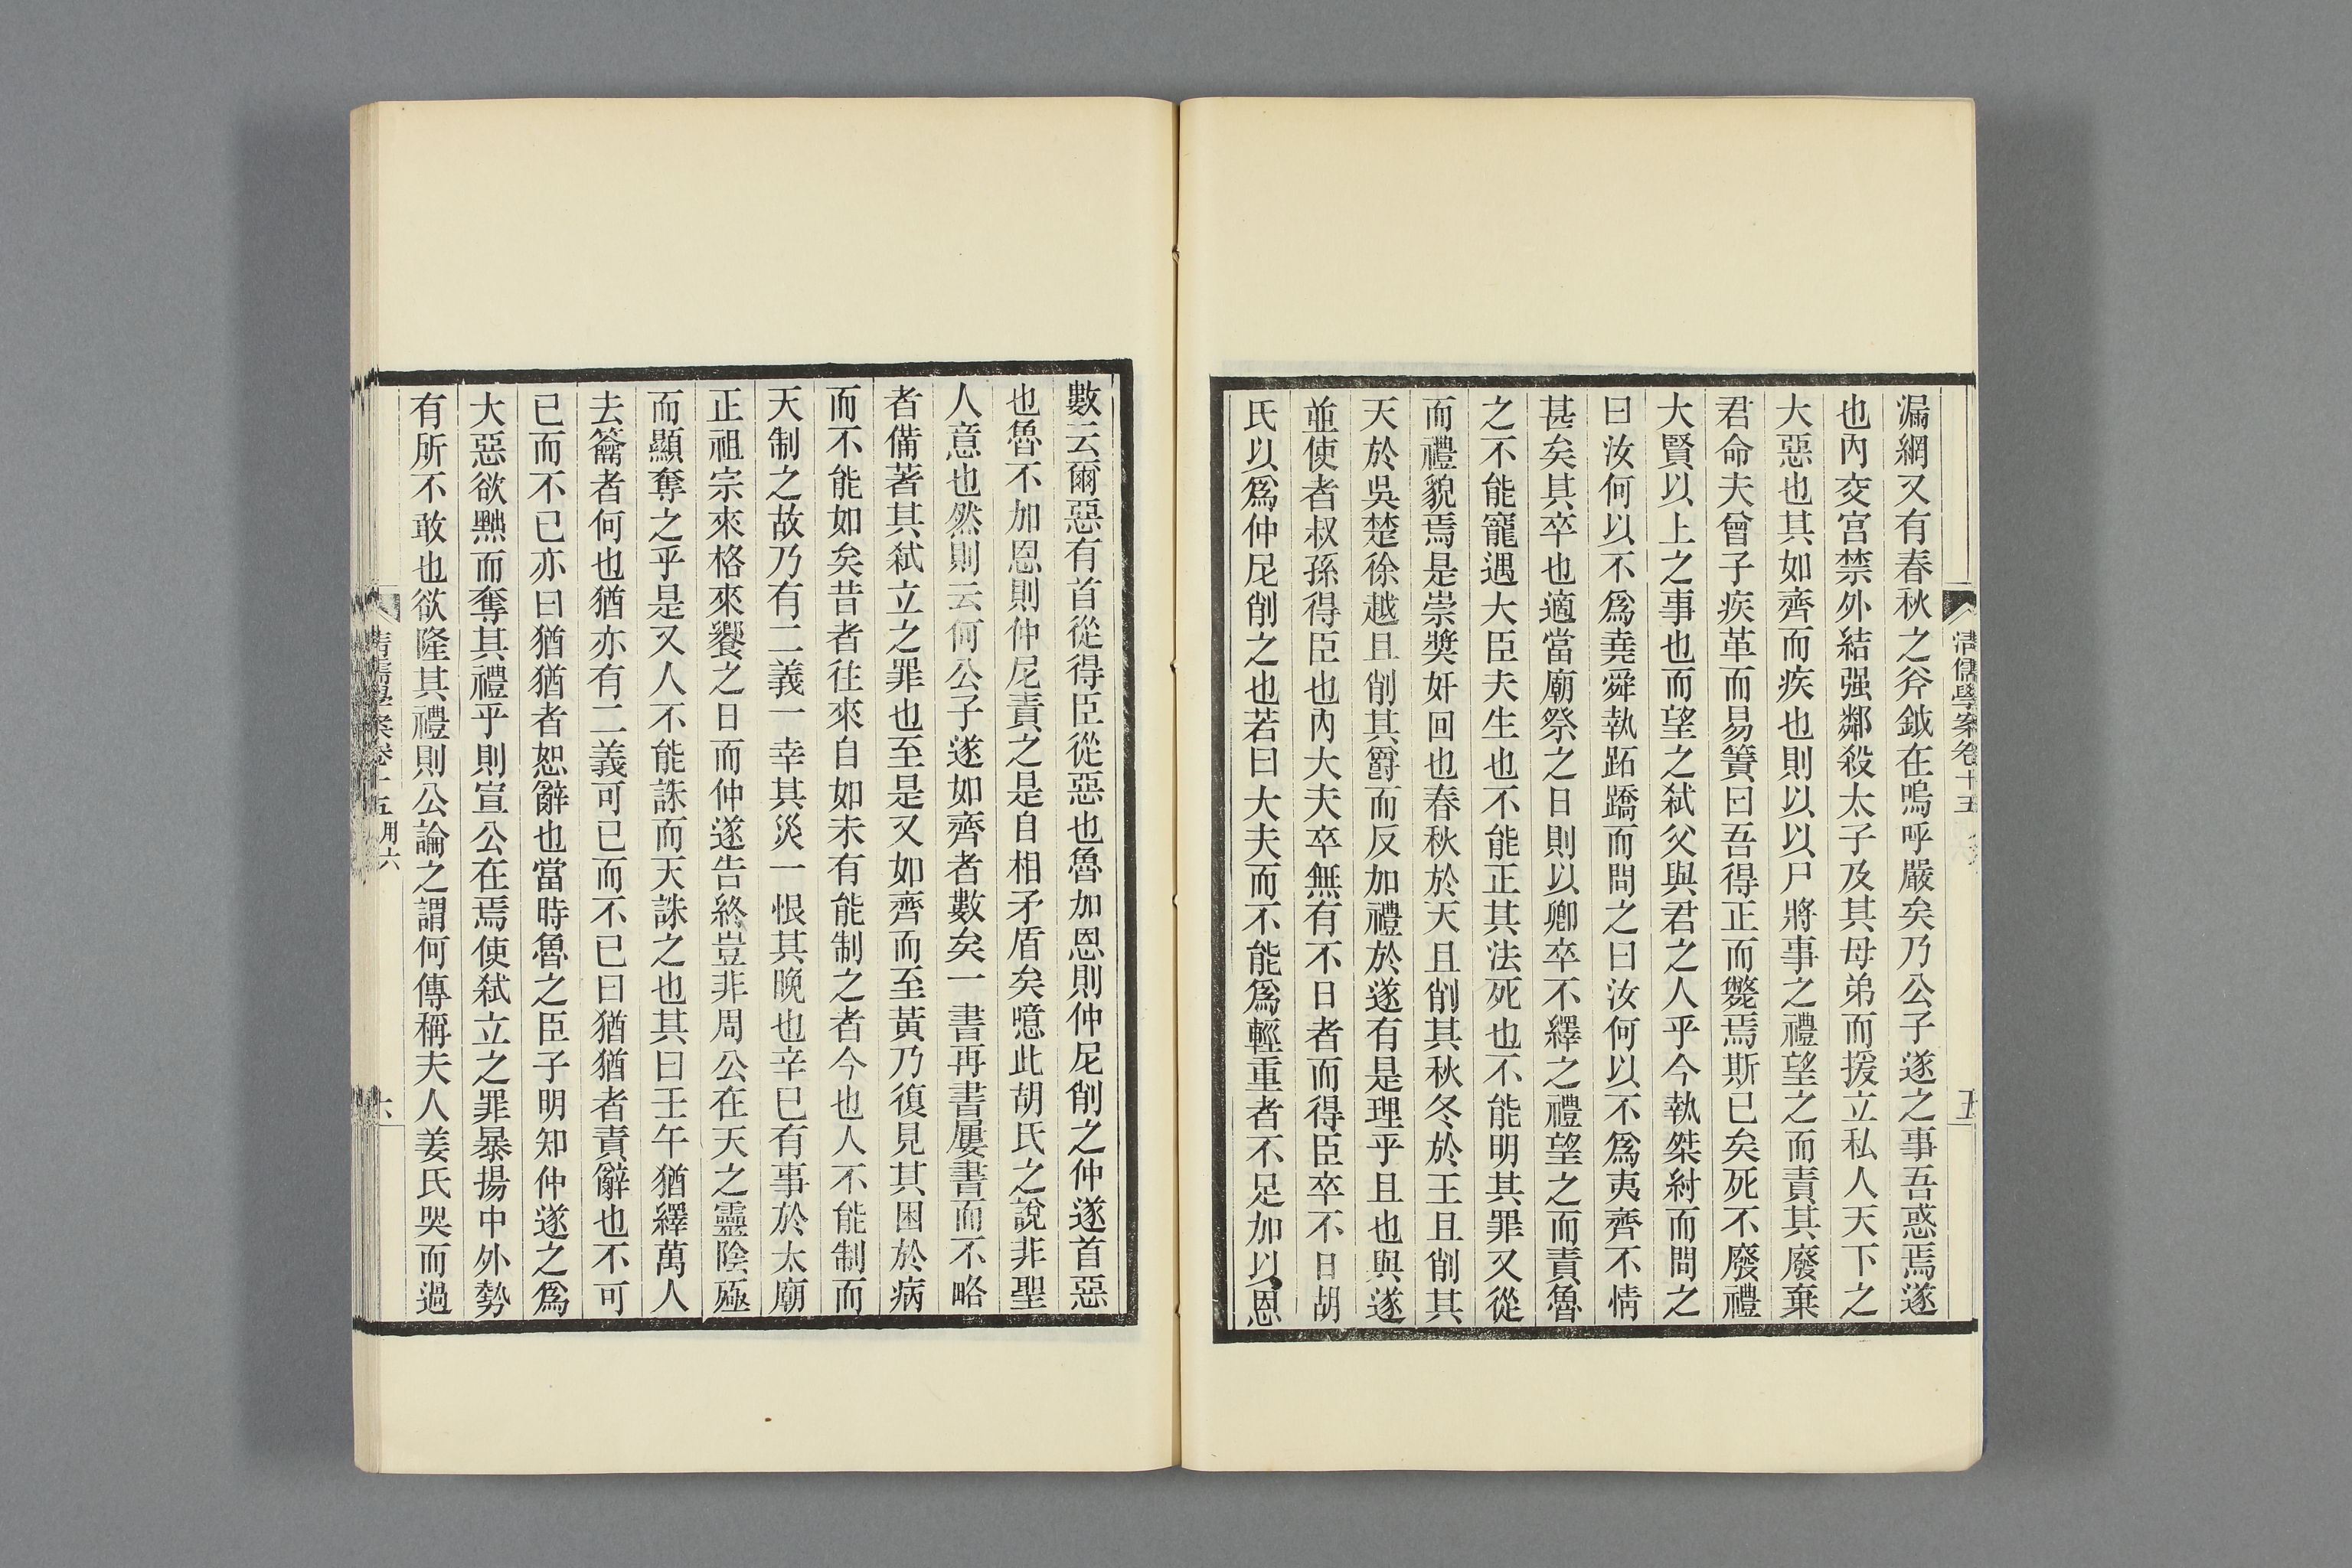 清儒學案卷十五
五
漏網又有春秋之斧鉞在嗚呼嚴矣乃公子遂之事吾惑焉遂
也內交宮禁外結强鄰殺太子及其母弟而援立私人天下之
大惡也其如齊而疾也則以以尸將事之禮望之而責其廢棄
君命夫曾子疾革而易簀曰吾得正而斃焉斯已矣死不廢禮
大賢以上之事也而望之弒父與君之人乎今執桀紂而問之
曰汝何以不爲堯舜執跖蹻而問之曰汝何以不爲夷齊不情
甚矣其卒也適當廟祭之日則以卿卒不繹之禮望之而責魯
之不能寵遇大臣夫生也不能正其法死也不能明其罪又從
而禮貌焉是崇獎奸回也春秋於天且削其秋冬於王且削其
天於吳楚徐越且削其爵而反加禮於遂有是理乎且也與遂
並使者叔孫得臣也內大夫卒無有不日者而得臣卒不日胡
氏以爲仲尼削之也若曰大夫而不能爲輕重者不足加以恩
數云爾惡有首從得臣從惡也魯加恩則仲尼削之仲遂首惡
也魯不加恩則仲尼責之是自相矛盾矣噫此胡氏之說非聖
人意也然則云何公子遂如齊者數矣一書再書屢書而不略
者備著其弒立之罪也至是又如齊而至黃乃復見其困於病
而不能如矣昔者往來自如未有能制之者今也人不能制而
天制之故乃有二義一幸其災一恨其晚也辛巳有事於太廟
正祖宗來格來饗之日而仲遂告終豈非周公在天之靈陰殛
而顯奪之乎是又人不能誅而天誅之也其曰壬午猶繹萬人
去籥者何也猶亦有二義可已而不已曰猶猶者責辭也不可
已而不已亦曰猶猶者恕辭也當時魯之臣子明知仲遂之爲
大惡欲黜而奪其禮乎則宣公在焉使弒立之罪暴揚中外勢
有所不敢也欲隆其禮則公論之謂何傳稱夫人姜氏哭而過
清儒學案卷十五
六